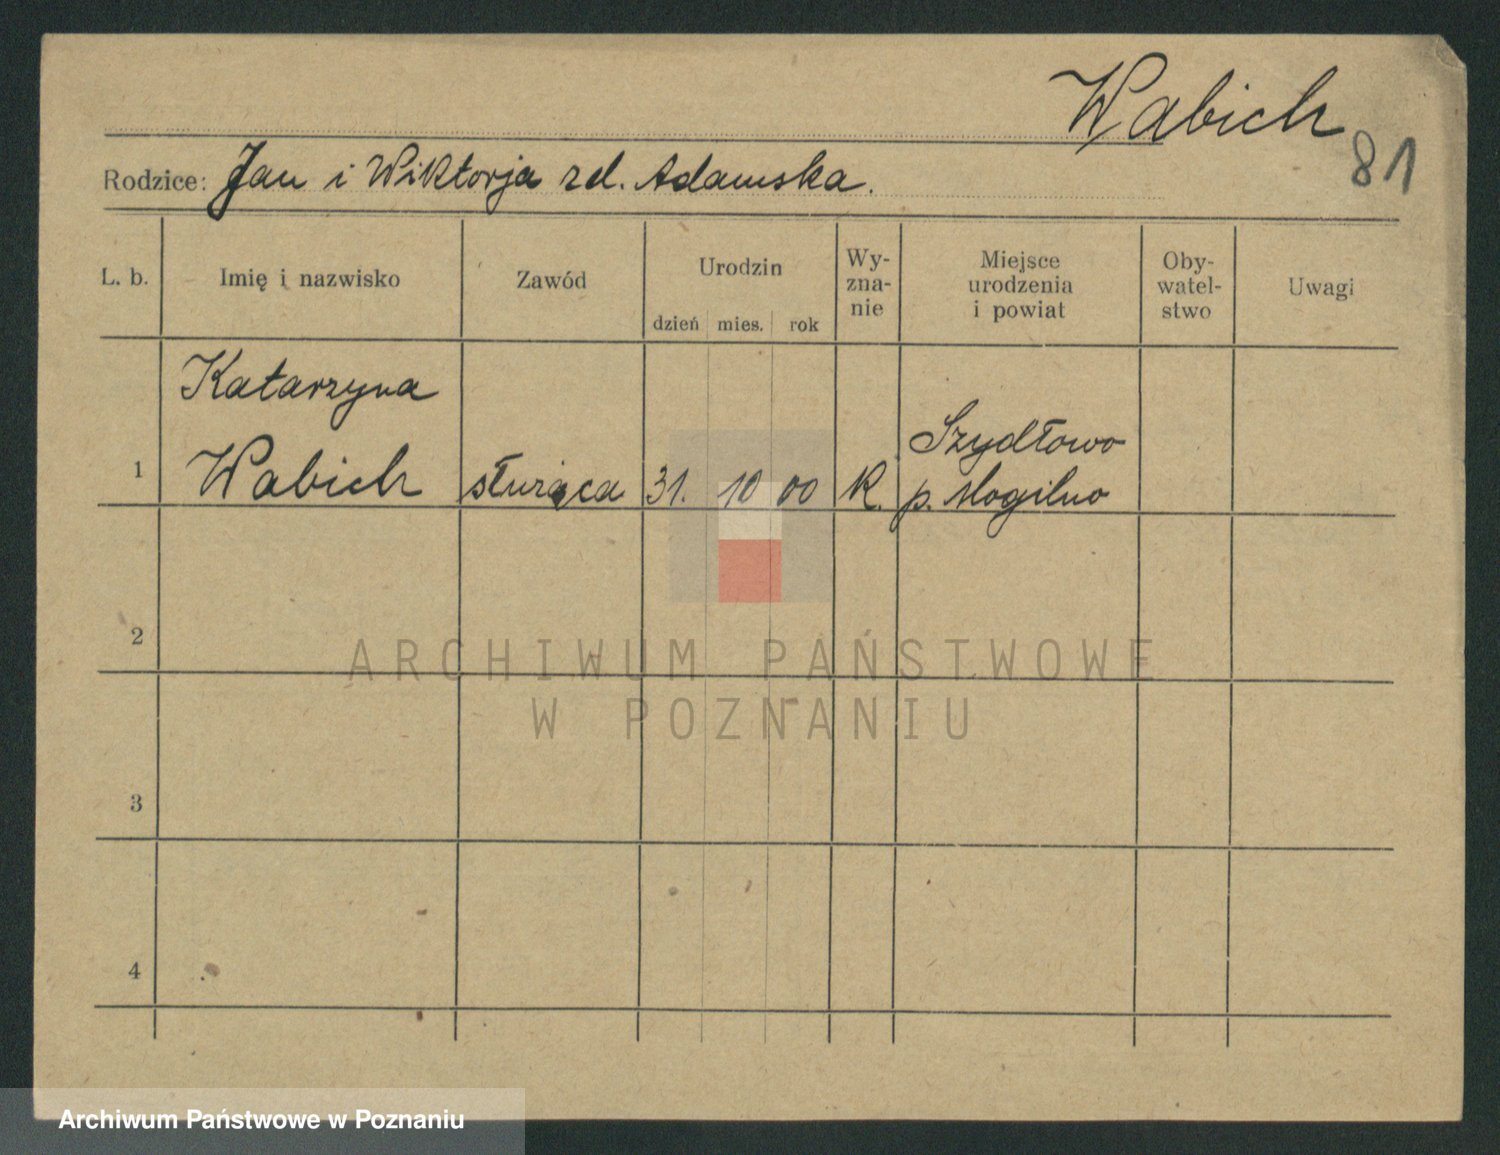 Wabich
81
Rodzice: Jan i Wiktorja zd. Adamska.
L. b. Imię i nazwisko Zawód Urodzin dzień mies. rok Wy-zna-nie Miejsce urodzenia i powiat Oby-watel-stwo Uwagi
Katarzyna
1 Wabich służąca 31. 10 00 K. Szydłowo
p. Mogilno
2
ARCHIWUM PAŃSTWOWE
W POZNANIU
3
4
Archiwum Państwowe w Poznaniu